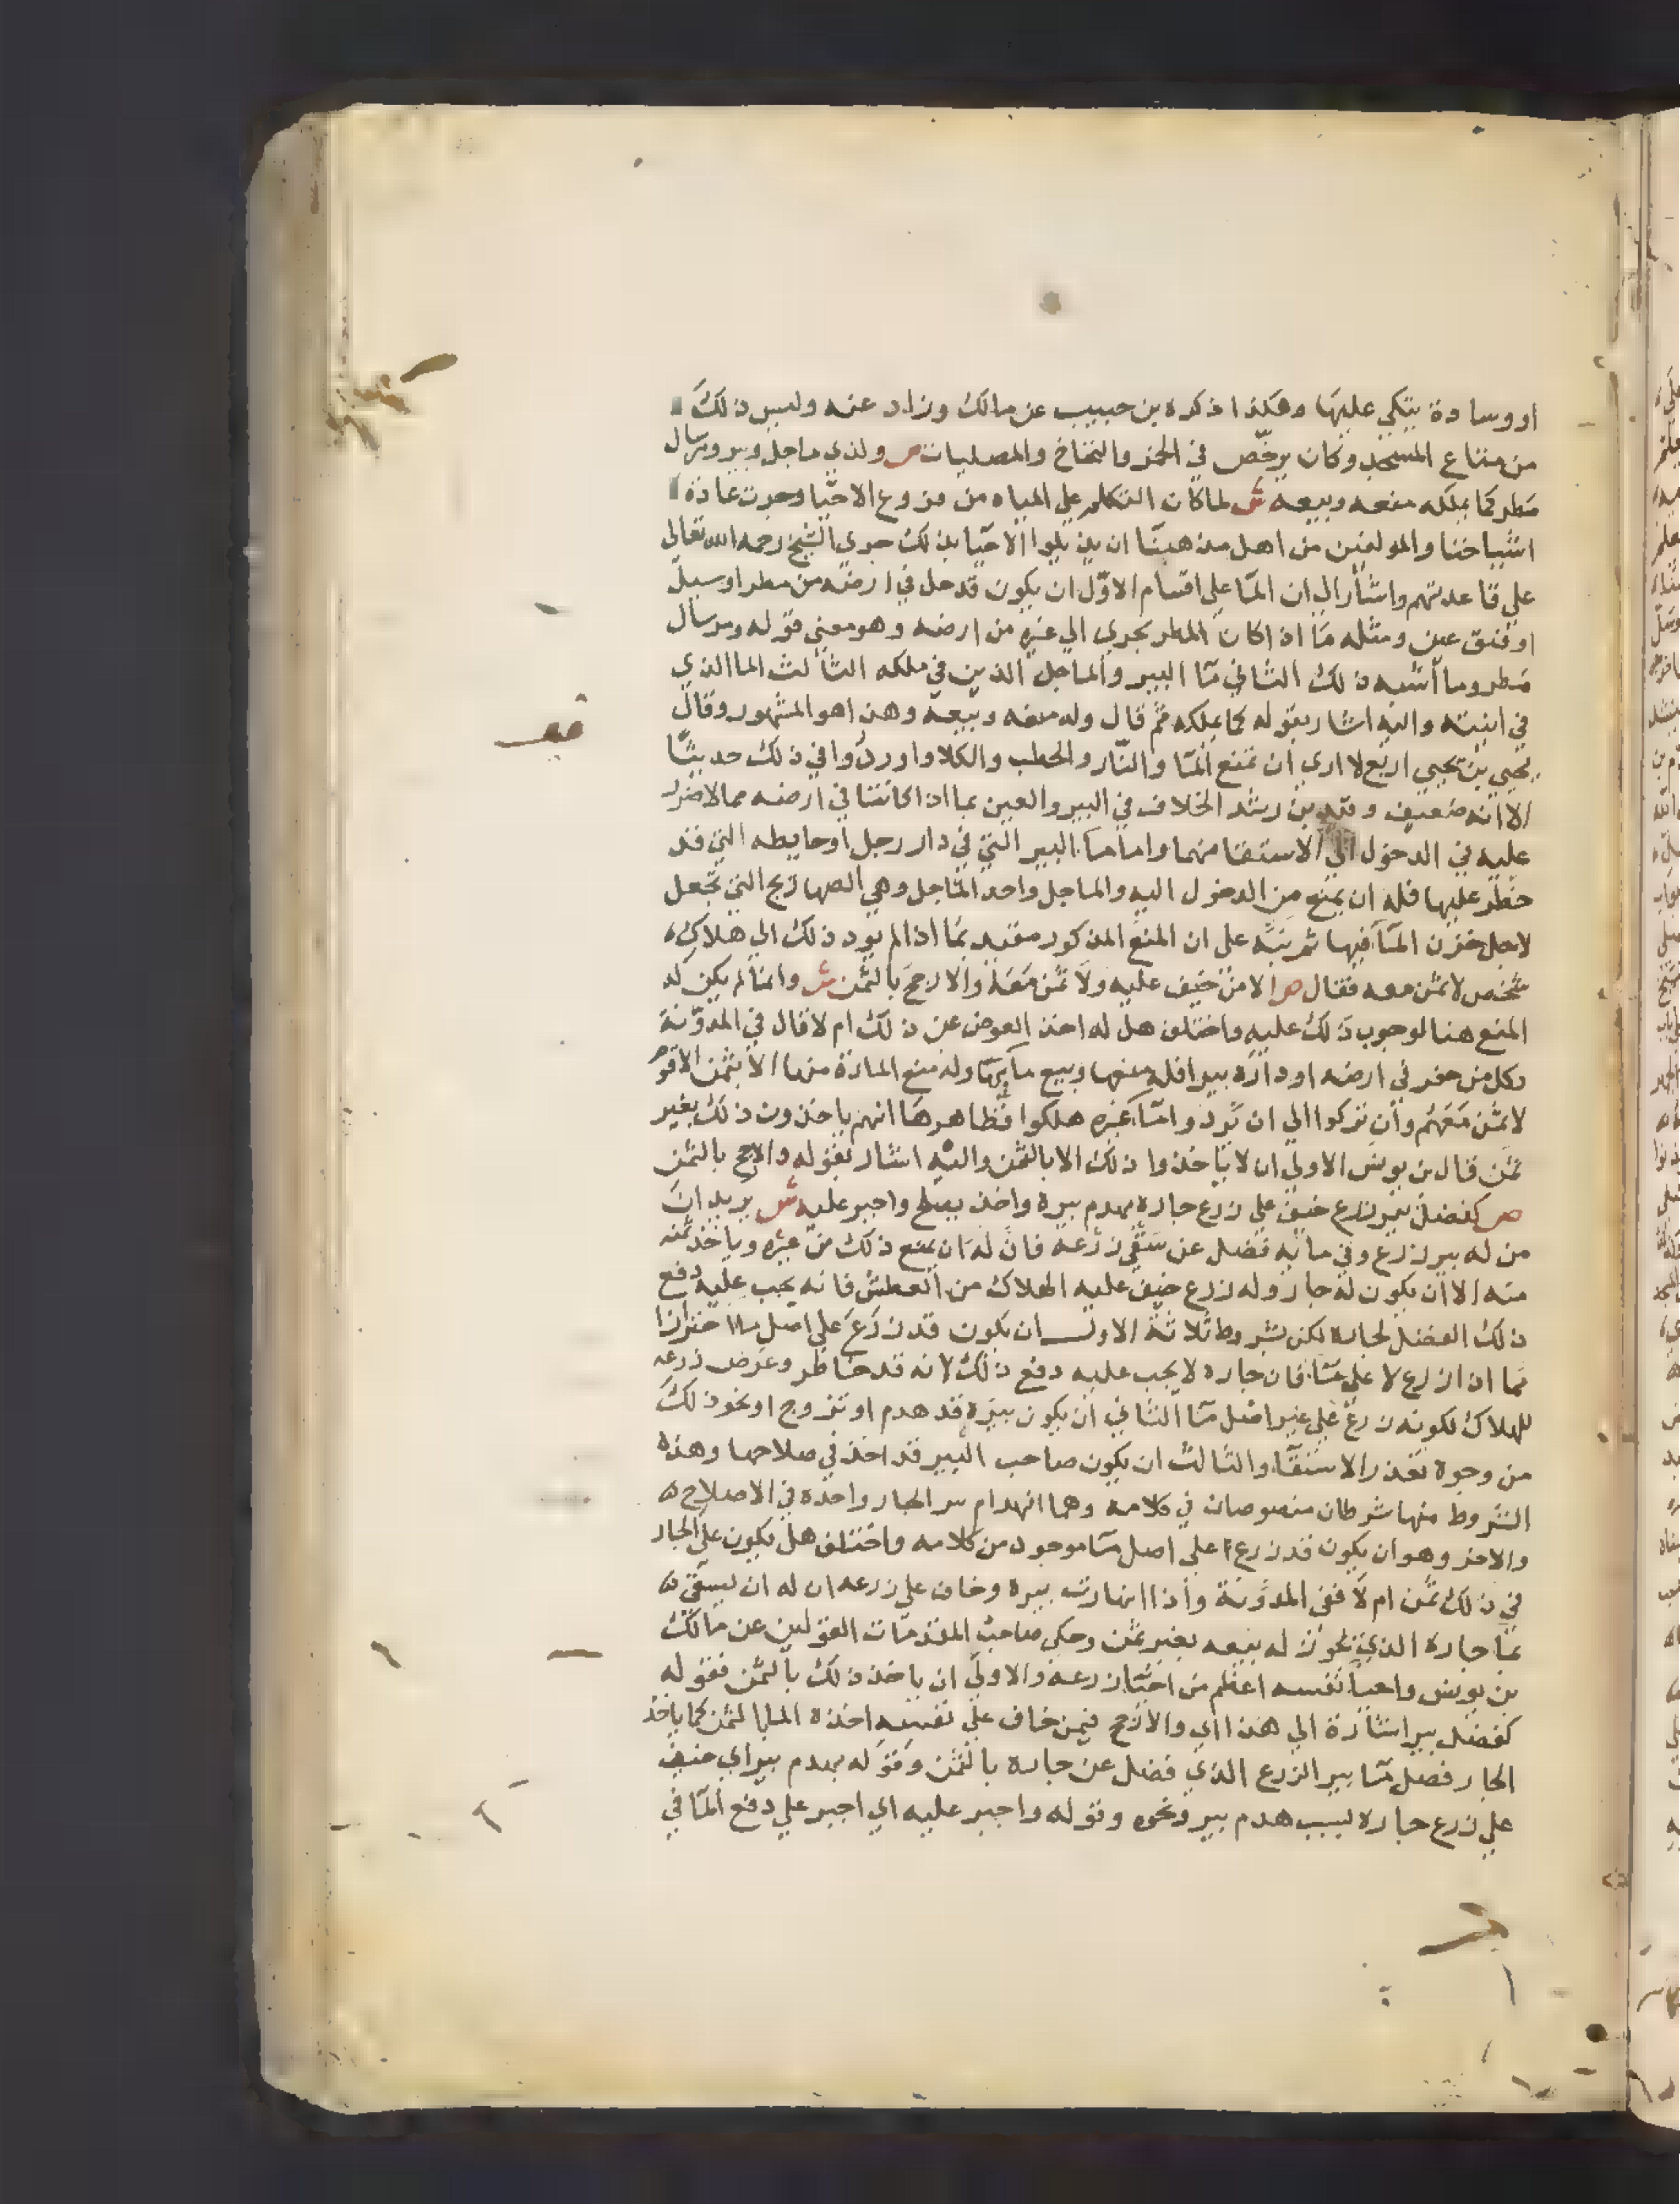 او وسادة يتكي عليها وهكذا ذكره بن حبيب عن مالك وزاد عنه وليس ذلك
من متاع المسجد وكان يرخص في الخمر والنخاخ والمصليات ص ولذي ماجل وبير ومرسال
مطر كما يملكه منعه وبيعه ش لما كان التكلم علي المياه من فروع الاحيا وجرت عادة
اشياخنا والمولفين من اهل مذهبنا ان يذيلوا الاحيا بذلك جري الشيخ رحمه الله تعالي
علي قاعدتهم واشار الي ان الما علي اقسام الاول ان يكون قد حل في ارضه من مطر او سيل
او فتق عين ومثله ما اذا كان المطر يجري الي غيره من ارضه وهو معني قوله ومرسال
مطر وما اشبه ذلك الثاني ما البير والماجل الذين في ملكه الثالث الما الذي
في انيته واليه اشار بقوله كما يملكه ثم قال وله منعه وبيعه وهذا هو المشهور وقال
يحيي بن يحيي اربع لا اري ان تمنع الما والنار والحطب والكلا واوردوا في ذلك حديثا
الا انه ضعيف وقيد بن رشد الخلاف في البير والعين بما اذا كانتا في ارضه مما لا ضرر
عليه في الدخول الي الاستقا منهما واما ما البير التي في دار رجل او حايطه التي قد
حظر عليها فله ان يمنع من الدخول اليه والماجل واحد المآجل وهي الصهاريج التي تجعل
لاجل خزن الما فيها ثم نبه علي ان المنع المذكور مقيد بما اذا لم يود ذلك الي هلاك
شخص لا ثمن معه فقال ص الا من خيف عليه ولا ثمن معه والارجح بالثمن ش وانما لم يكن له
المنع هنا لوجوب ذلك عليه واختلف هل له اخذ العوض عن ذلك ام لا قال في المدونة
وكل من حفر في ارضه او داره بيرا فله منعها وبيع مآيها وله منع المارة منها الا بثمن الا قوم
لا ثمن معهم وان تركوا الي ان يردوا ما غيره هلكوا فظاهرها انهم ياخذون ذلك بغير
ثمن قال بن يونس الاولي ان لا ياخذوا ذلك الا بالثمن واليه اشار بقوله والارجح بالثمن
ص كفضل بير زرع خيف علي زرع جاره بهدم بيره واخذ يصلح واجبر عليه ش يريد ان
من له بير زرع وفي مايه فضل عن سقي زرعه فان له ان يمنع ذلك من غيره وياخذ ثمنه
منه الا ان يكون له جار وله زرع خيف عليه الهلاك من العطش فانه يجب عليه دفع
ذلك الفضل لجاره لكن بشروط ثلاثة الاول ان يكون قد زرع علي اصل ما احترازا
مما اذا زرع لا علي ما فان جاره لا يجب عليه دفع ذلك لانه قد خاطر وعرض زرعه
للهلاك لكونه زرع علي غير اصل ما الثاني ان يكون بيره قد هدم او تزوج او نحو ذلك
من وجوه تعذر الاستقا والثالث ان يكون صاحب البير قد اخذ في صلاحها وهذه
الشروط منها شرطان منصوصان في كلامه وهما انهدام بير الجار واخذه في الاصلاح
والاخر وهو ان يكون قد زرع علي اصل ما موجود من كلامه واختلف هل يكون علي الجار
في ذلك ثمن ام لا ففي المدونة واذا انهارت بيره وخاف علي زرعه ان له ان يسقي
بما جاره الذي يجوز له بيعه بغير ثمن وحكي صاحب المقدمات القولين عن مالك
بن يونس واحيا نفسه اعظم من احيا زرعه والاولي ان ياخذ ذلك بالثمن فقوله
كفضل بير اشارة الي هذا اي والارجح فيمن خاف علي نفسه اخذه الما بالثمن كما ياخذ
الجار فضل ما بير الزرع الذي فضل عن جاره بالثمن وقوله بهدم بير اي خيف
علي زرع جاره لسبب هدم بير ونحوه وقوله واجبر عليه اي اجبر علي دفع الما في